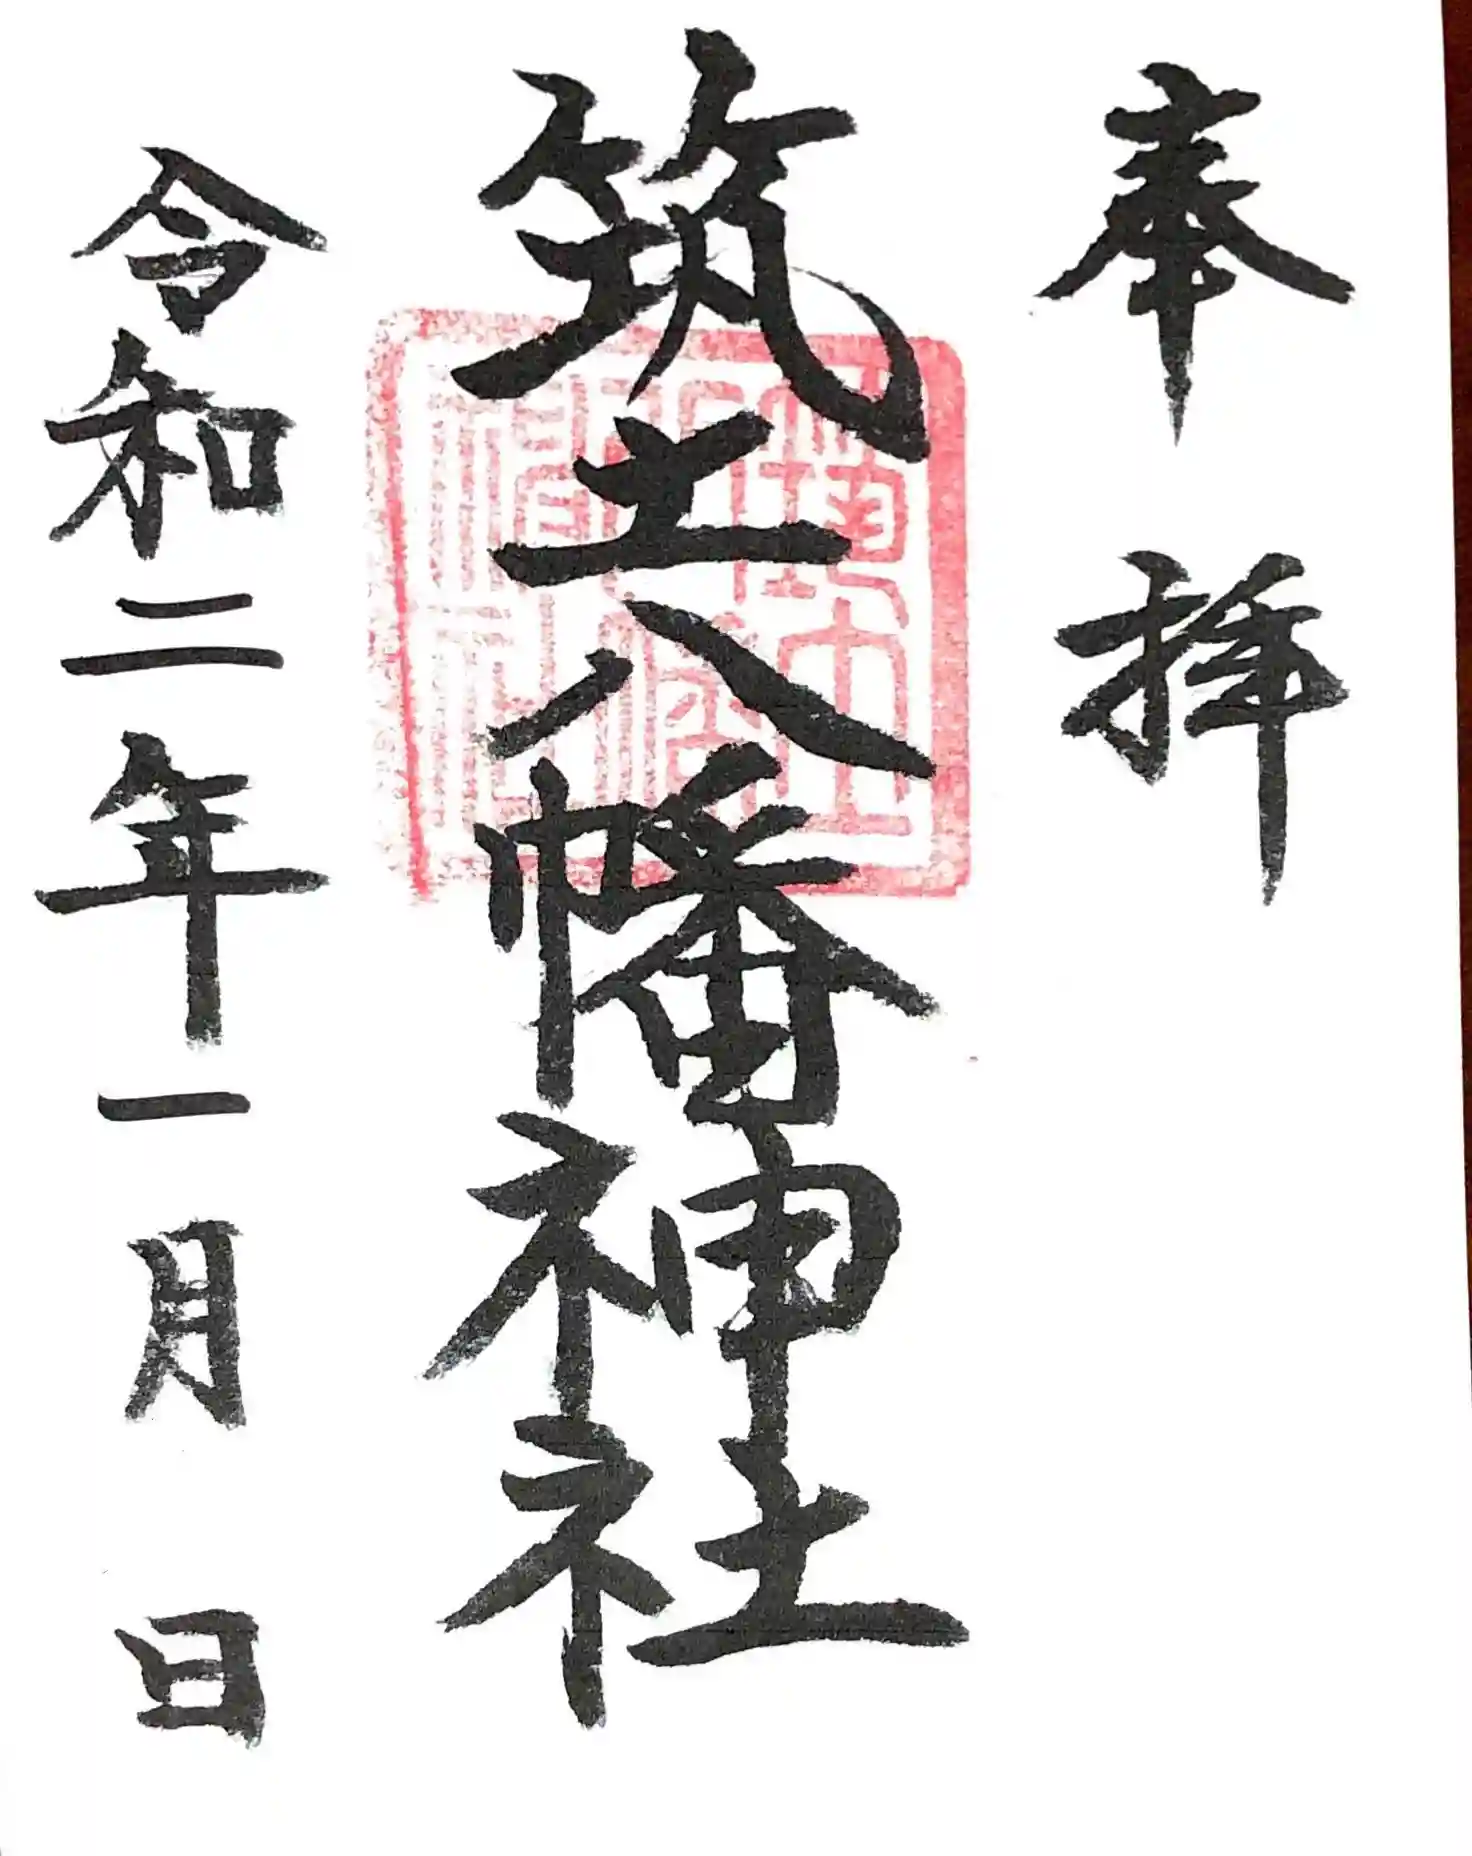 奉拝
筑土八幡神社
令和二年一月 日